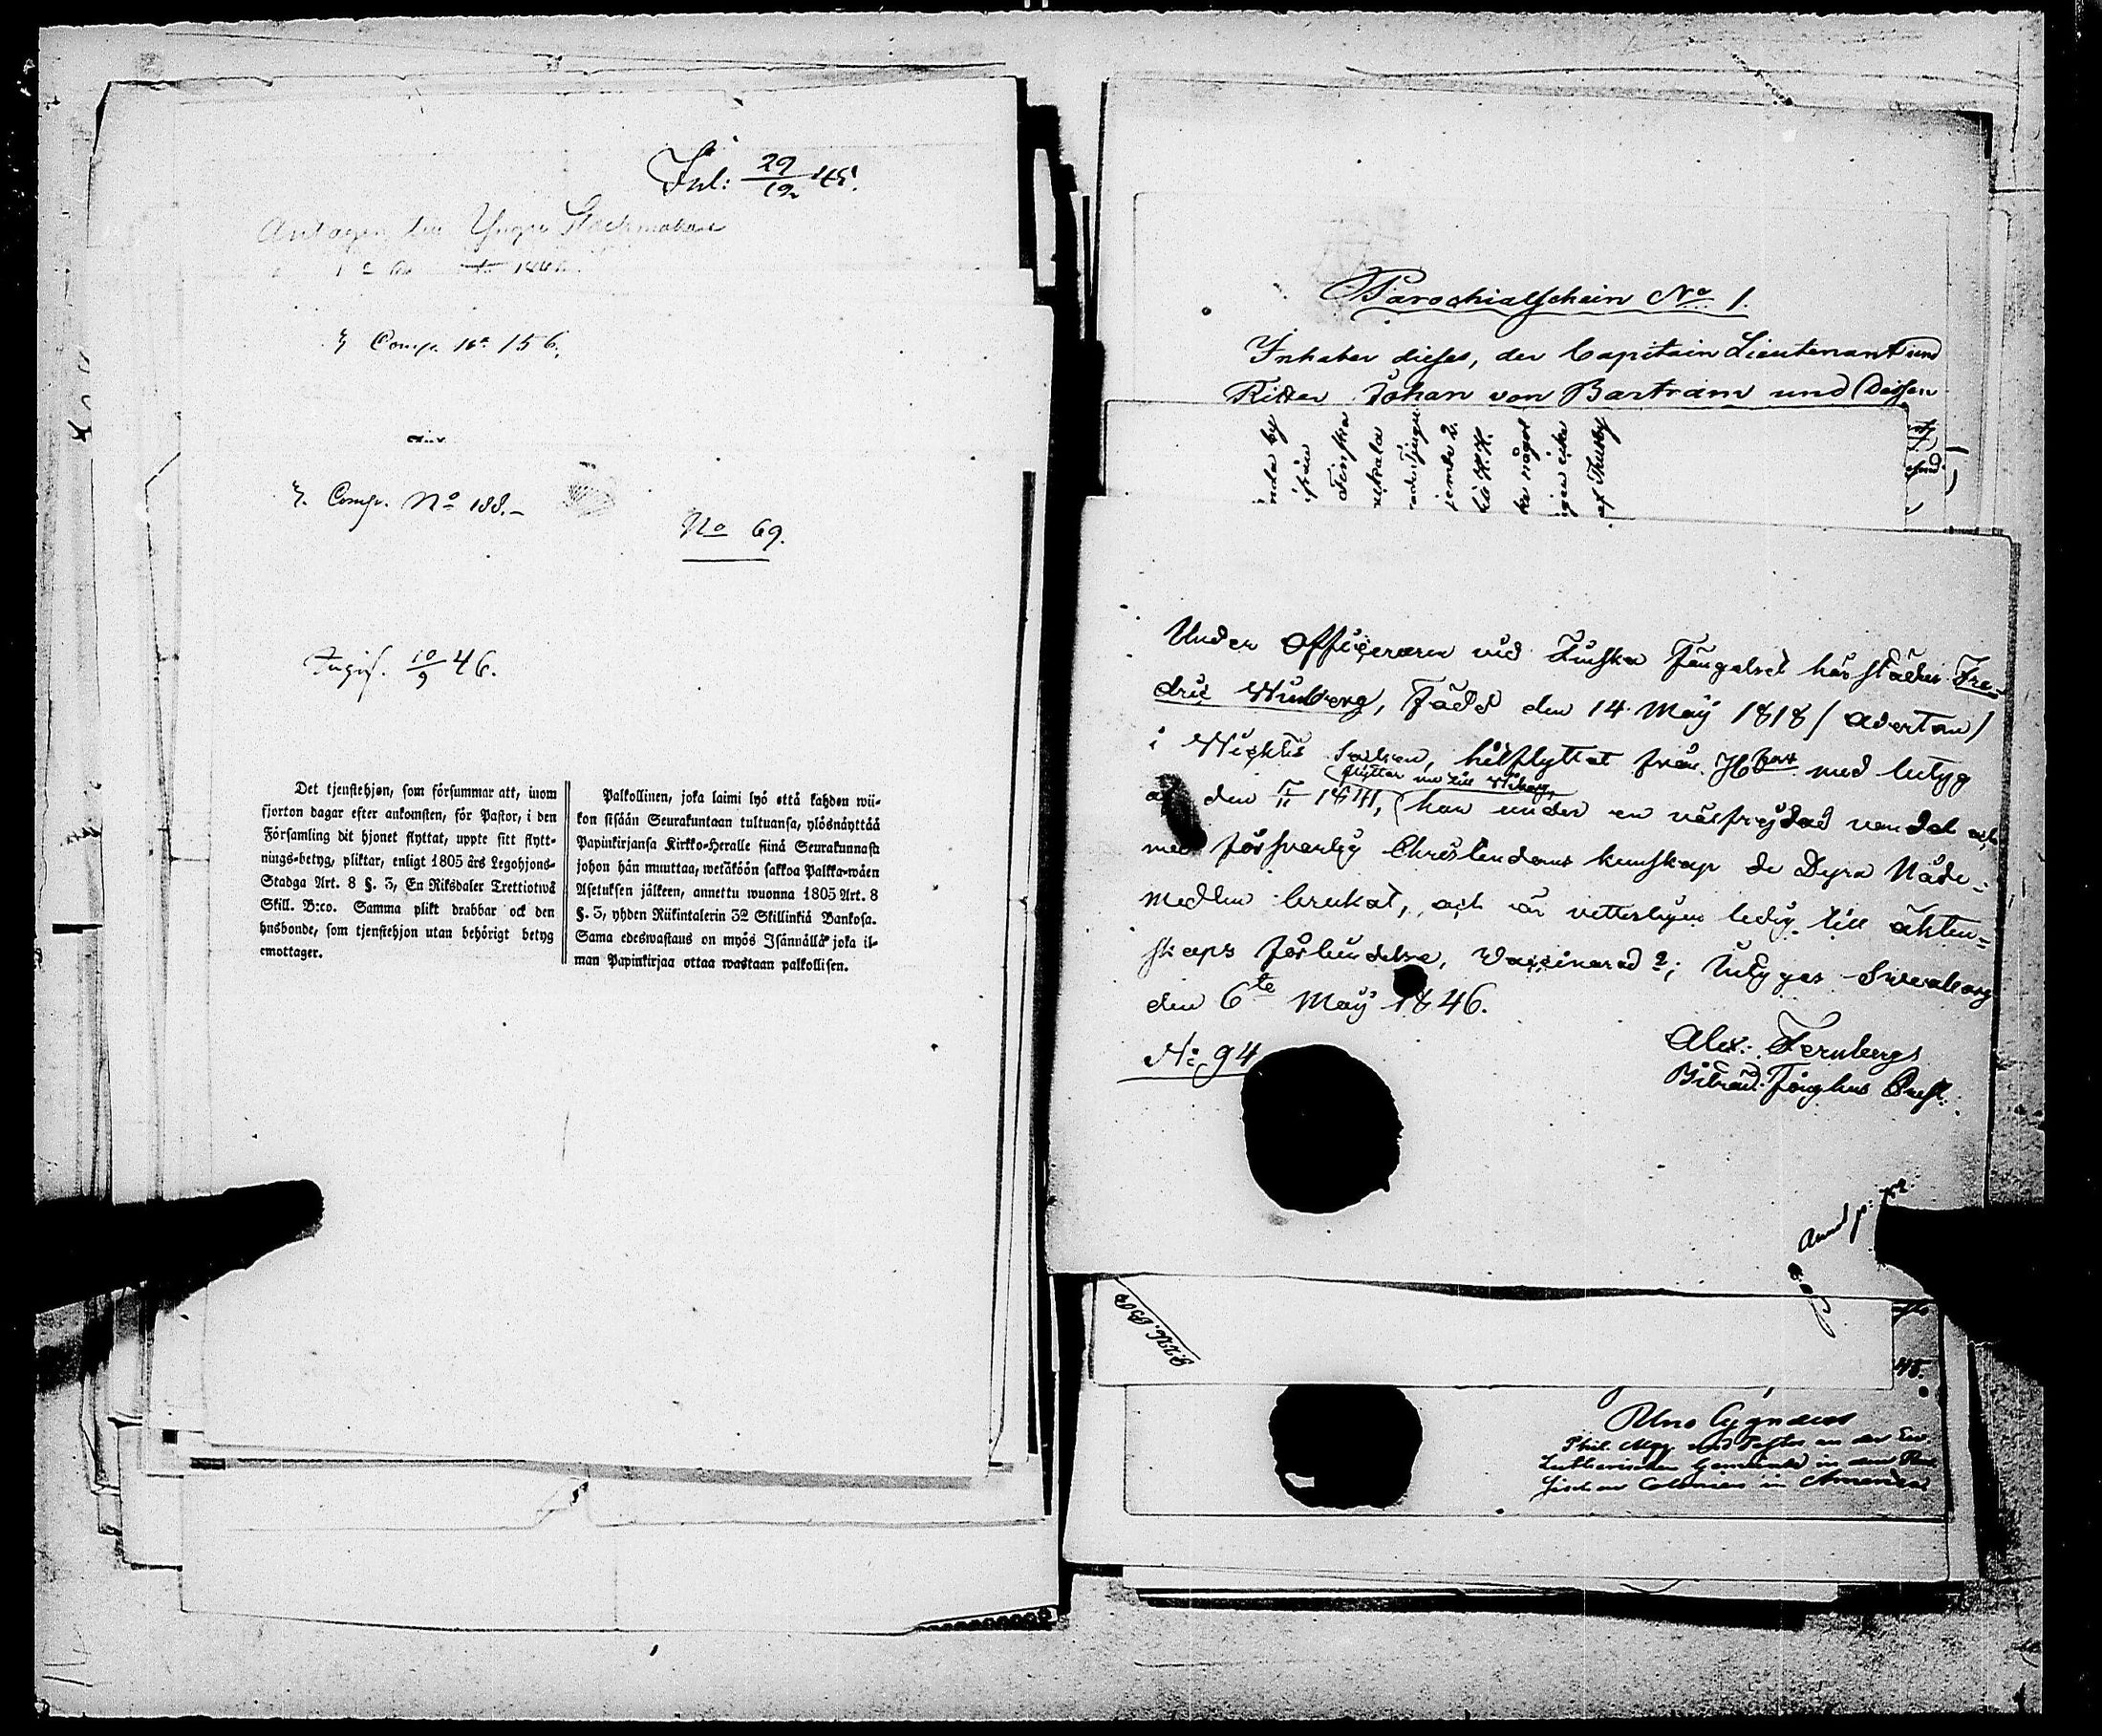 Inl: 29/12 45.
Antagen till Yngre
Comp. No 156.
Comp. No 188.
No 69.
Ingif. 10/9 46.
Det tjenstehjon, som försummar att, inom
fjorton dagar efter ankomsten, för Pastor, i den
Församling dit hjonet flyttat, uppte sitt flytt-
nings-betyg, pliktar, enligt 1805 års Legohjons-
Stadga Art. 8 §. 3, En Riksdaler Trettiotwå
Skill. B:co. Samma plikt drabbar ock den
husbonde, som tjenstehjon utan behörigt betyg
emottager.
Palkollinen, joka laimi lyö että kahden wii-
kon sisään Seurakuntaan tultuansa, ylösnäyttää
Papinkirjansa Kirkko-Heralle siinä Seurakunnasa
johon hän muuttaa, wetäköön sakkoa Palkka-wäen
Asetuksen jälkeen, annettu wuonna 1805 Art. 8
§. 3, yhden Riikintalerin 32 Skillinkiä Bankosa.
Sama edeswastaus on myös Isännällä joka il-
man Papinkirjaa ottaa wastaan palkollisen.
Parochialschein No 1.
Inhaber dieses, der Capitain Lieutenant und
Ritter Johan von Bartram und Dessen
Under officeraren vid Finska Fängelset härstädes Fre-
dric Winberg, Född den 14 May 1818 / aderton /
i Wichtis Socken, hitflyttat från Hfors med betyg
flyttar nu till Wiborg,
af den 5/11 1841, har under en välfrejdad vandel och
med försvarlig Christendoms kunskap de Dyra Nåde-
medlen brukat, och är vetterligen ledig till äkten-
skaps förbindelse, Vaccinerad ?; betygas Sweaborg
den 6te May 1846.
No 94
Alex: Fernberg
Biträd: Fänghus Pred.
Uno Cygnaeus
Phil. Mag. und Pastor an der Ev.
Lutherischen Gemeinde in den Rus-
sischen Colonien in America